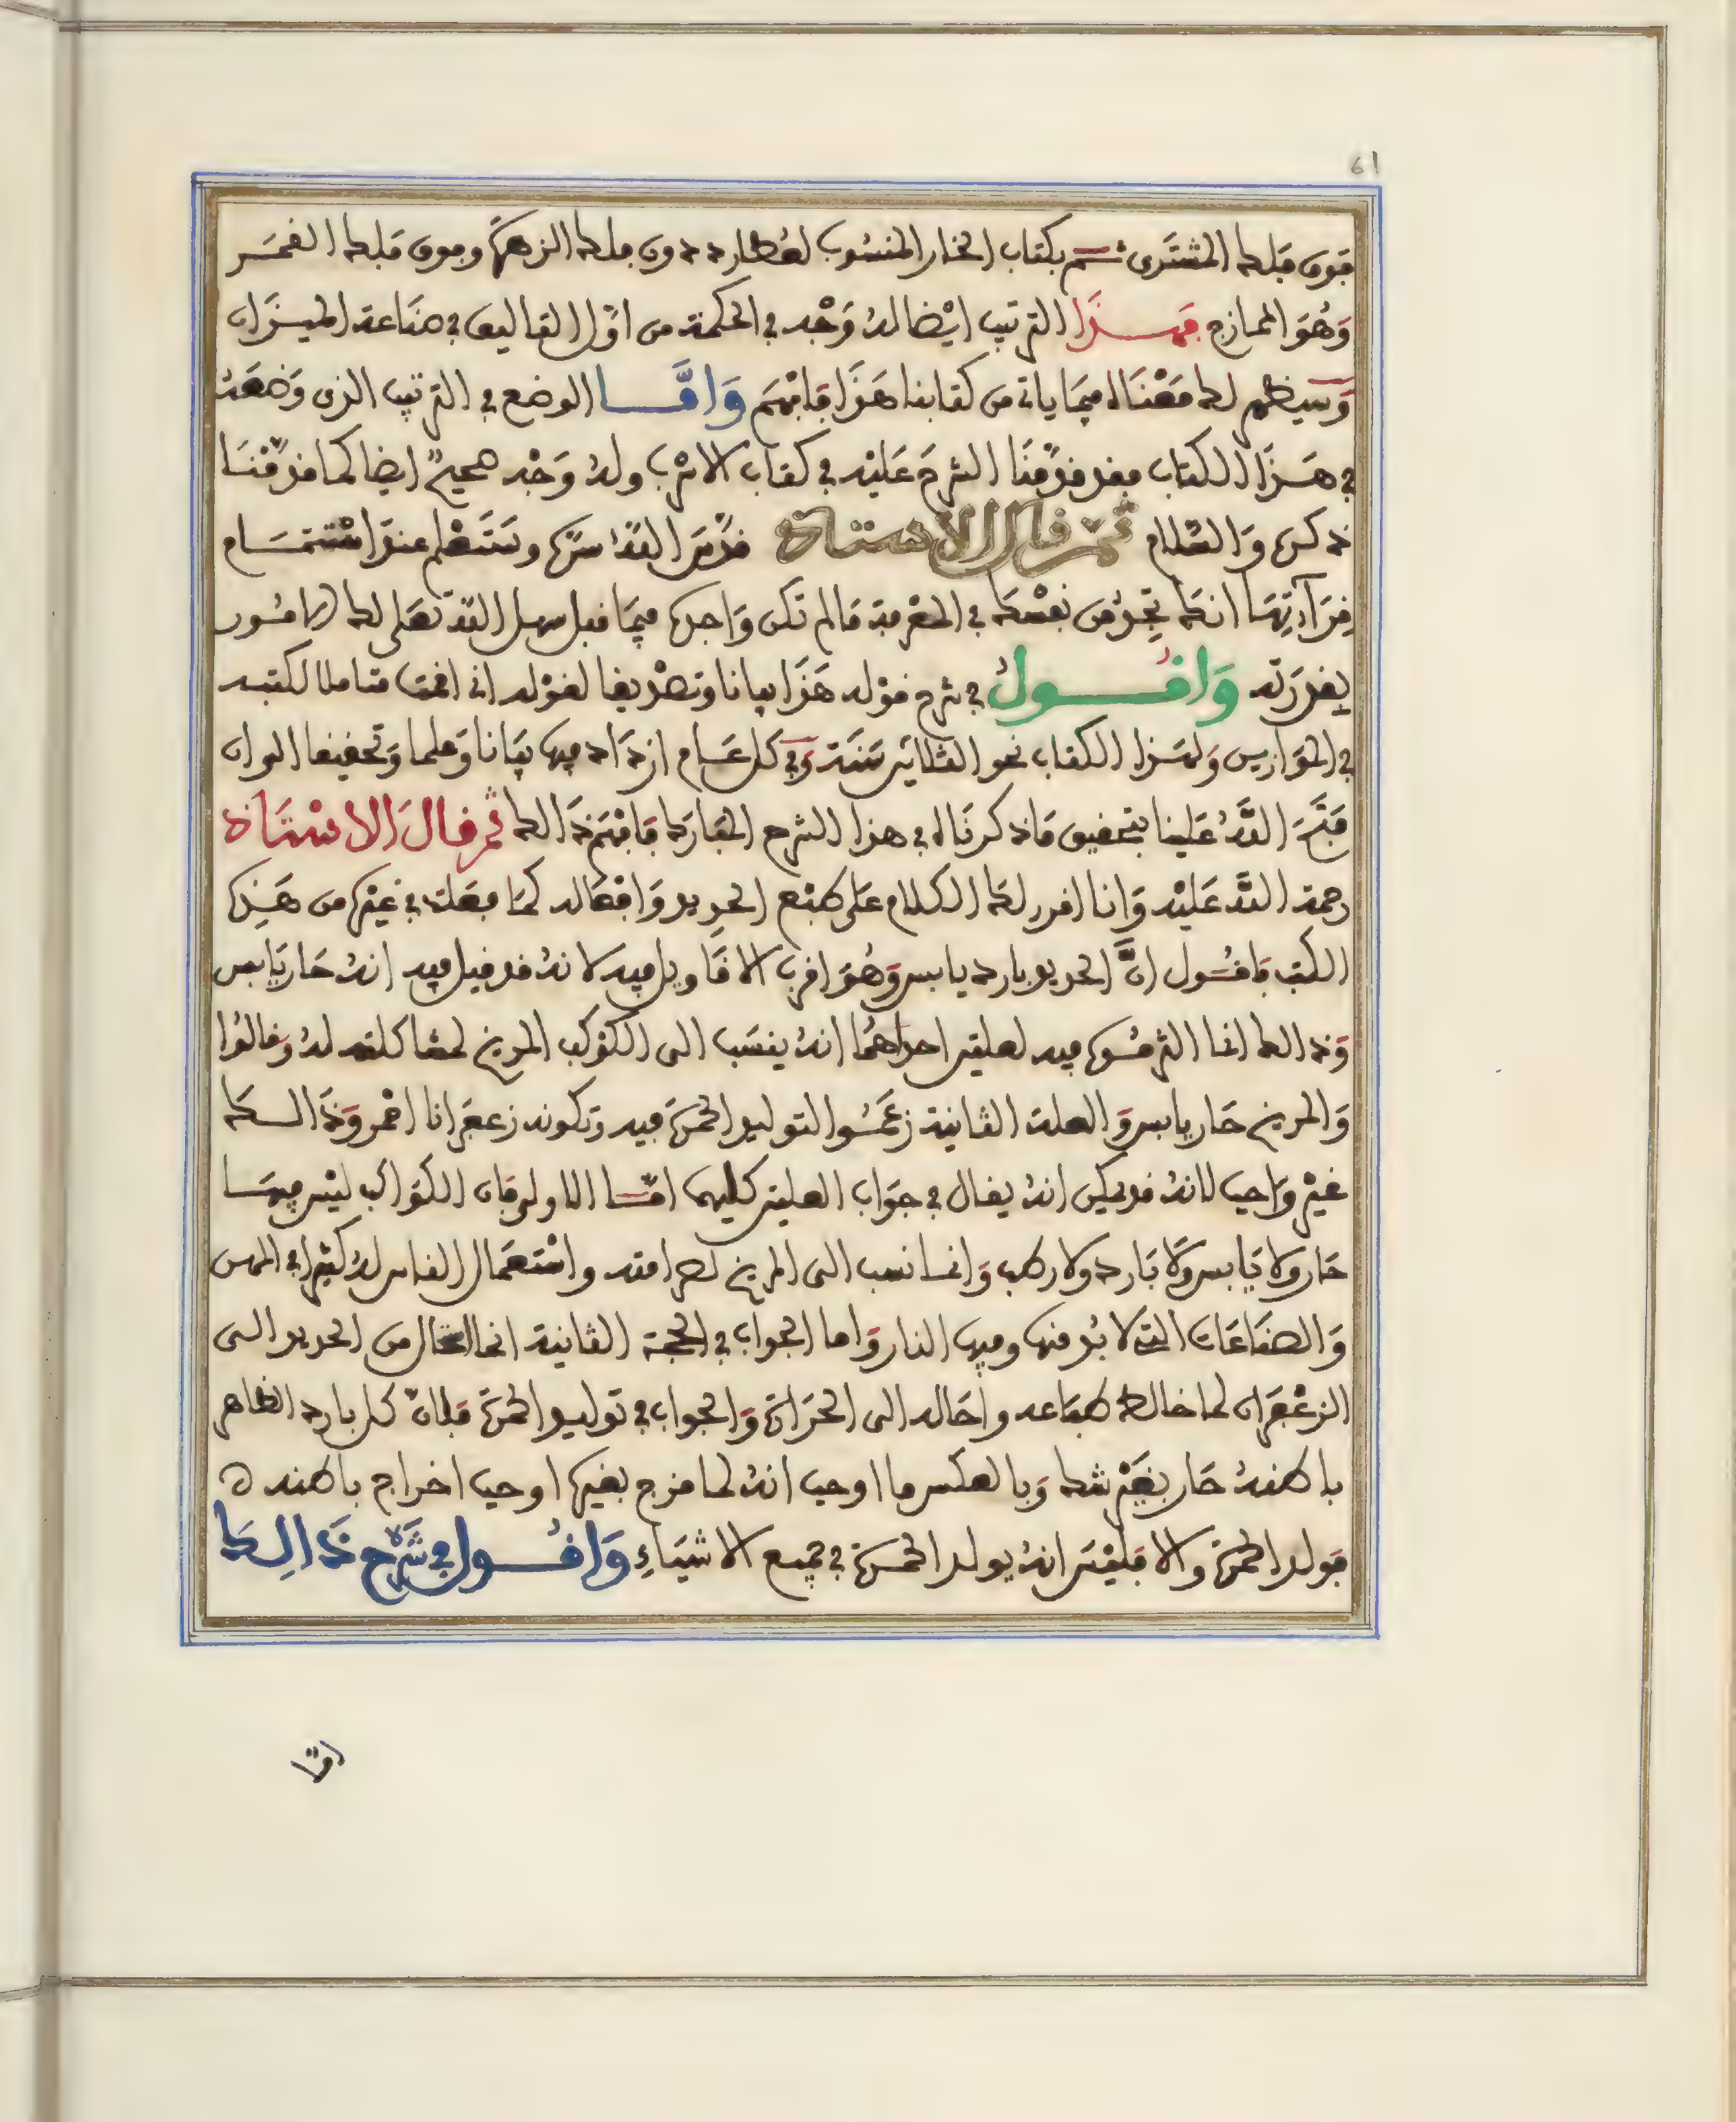 61
فوق فلك المشترى ثم بكتاب الخار المنسوب لعطارد دون فلك الزهرة وفوق فلك القمر
وَهُوَ الممازج فهذا الترتيب ايْضا لهُ وَجْه في الحكمة من اوّل التاليف في صناعة الميزان
وَسيظهر لك مَعْنَاه فيمَا ياتى من كتابنا هَذَا فَافْهَم وَامَّا الوضع في الترتيب الذى وَضعَهُ
في هَذَا الكتاب فقد قدّمْنَا الشرحَ عَليْه في كتاب الاترب ولهُ وَجْه صحيحٌ ايضا كما قدّمْنَا
ذكره وَالسّلام ثم قال الاستاذ قدّسَ اللهُ سرّه وسَتَعْلم عندَ اسْتتمَام
قِرَآءَتِهَا انك تجِدُ من نفسْك في المعْرفة مَا لم تكن وَاجده فيمَا قبل سهل الله تعلى لك الامُور
بقدرَته وَاقُول في شرح قوْله هَذَا بيانا وتصْديقا لقوْله انى اقمت متاملا لكتبه
في الموَازين وَلهَذا الكتاب نحو الثلاثين سَنَة وَفي كل عَام ازدَاد فيها بيَانا وَعلما وَتحقيقا الى ان
فَتَحَ اللَّهُ عَلينا بتحقيق مَا ذكرنَاه في هذا الشرح المبَارك فَافْهَم ذَالك ثم قالَ الاسْتَاذ
رحمة اللَّه عَليْه وَانا اقرر لك الكلام عَلى طبْع الحديد وَافْعَاله كمَا فعَلت في غيْره من هَذِه
الكتب فاقُول انَّ الحديد بارد يابس وَهُوَ اقرب الاقَاويل فيه لانهُ قد قيل فيه انهُ حَار يَابس
وَذالك انما التزمُوه فيه لعلتين احداهُمَا انهُ ينسَب الى الكوْكب المريخ لمشاكلته لهُ وقالوُا
وَالمريخ حَار يابس وَالعلة الثانية زعَمُوا لتوليد الحمرَة فيه وَتكونه زعفرانا احْمر وَذَالك
غيْر وَاجب لانهُ قد يمكن انهُ يقال في جوَاب العلتين كليهما امّا الاولى فان الكوَاكب ليْس فيهَا
حَار ولا يَابس وَلَا بَارد ولا رطب وَانما نسب الى المريخ لصرامته واسْتعمَال الناس لهُ كثيرا في المهن
وَالصنَاعَات التى لا بُد منها وفيها النار وَاما الجواب في الحجة الثانية انما استحال من الحديد الى
الزعْفرَان لما خالط طبَاعه واحَاله الى الحرَارة وَالجواب في توليد الحمرَة فلانّ كل بارد الظاهر
باطنهُ حَار بغيْر شك وَبالعكس ما اوجب انهُ لما مزج بغيره اوجب اخراج باطنه
فولد الحمرة والا فليْس انهُ يولد الحمرَة في جميع الاشيَاءِ وَاقُول في شَرْح ذَالِك
امّا